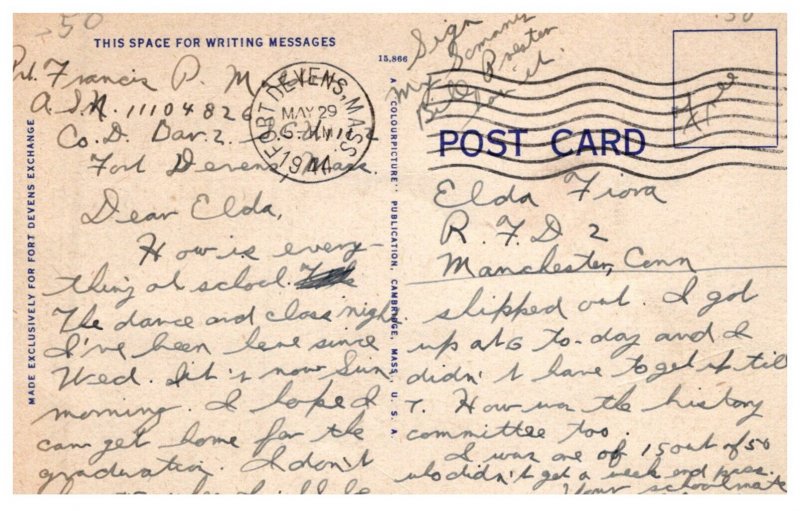 THIS SPACE FOR WRITING MESSAGES
Pvt. Francis P. M
A.S.N. 11104826
Co. D. Bar. 2.
Fort Devens Mass.
Dear Elda,
How is every-
thing at school.
The dance and class night.
I've been here since
Wed. It's now Sun.
morning. I hope I
can get home for the
graduation. I don't
MADE EXCLUSIVELY FOR FORT DEVENS EXCHANGE
FORT DEVENS, MASS.
MAY 29
1944
15,866
A "COLOURPICTURE" PUBLICATION, CAMBRIDGE, MASS., U. S. A.
Sign
My
Bill Preston
for it.
Free
POST CARD
Elda Fiora
R. F. D 2
Manchester, Conn
shipped out. I got
up at 6 to-day and I
didn't have to get up till
7. How was the history
committee too.
I was one of 15 out of 50
who didn't get a week end pass.
Your schoolmate